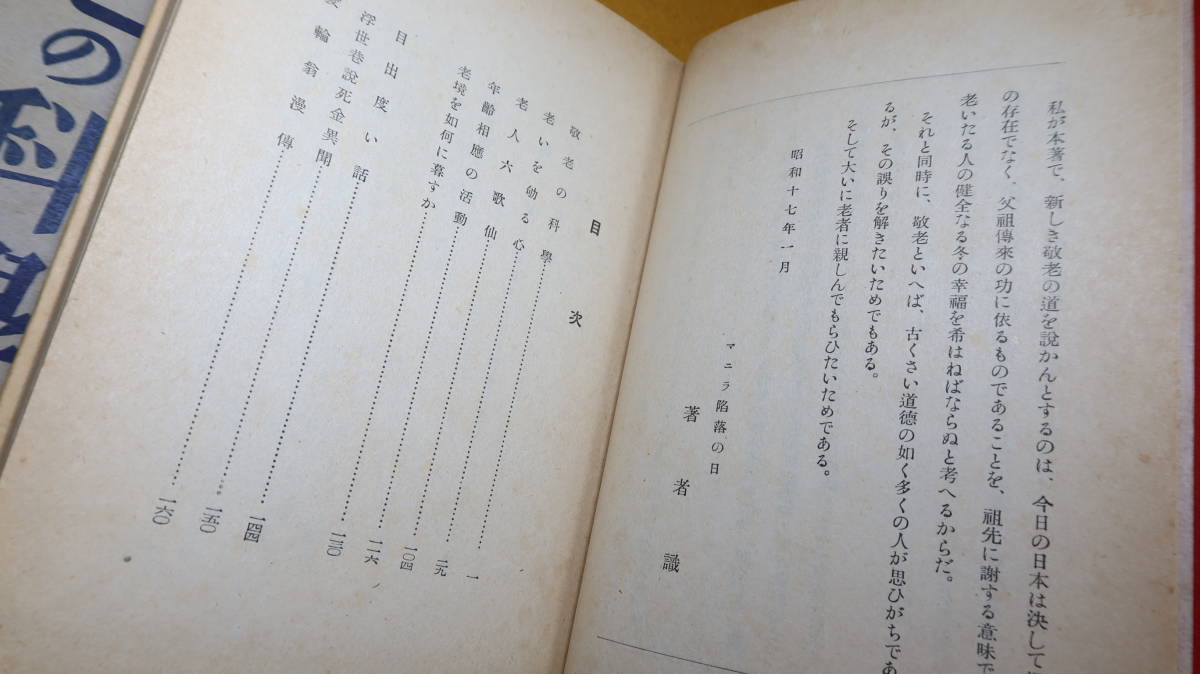 私が本著で、新しき敬老の道を說かんとするのは、今日の日本は決して
の存在でなく、父祖傳來の功に依るものであることを、祖先に謝する意味で
老いたる人の健全なる冬の幸福を希はねばならぬと考へるからだ。
それと同時に、敬老といへば、古くさい道德の如く多くの人が思ひがちであ
るが、その誤りを解きたいためでもある。
そして大いに老者に親しんでもらひたいためである。
昭和十七年一月
マニラ陷落の日
著者識
目次
敬老の科學…………一
老いを劬る心…………二九
老人六歌仙…………一〇四
年齡相應の活動…………一一六
老境を如何に暮すか…………一三〇
目出度い話…………一四四
浮世巷說死金異聞…………一五〇
輪翁漫傳…………一六〇
の科